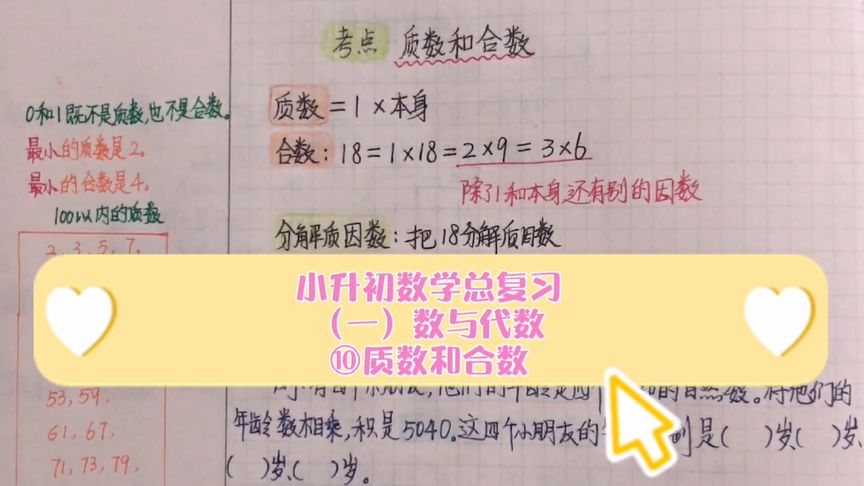 考点 质数和合数
0和1既不是质数,也不是合数。
最小的质数是2。
最小的合数是4。
100以内的质数
2,3,5,7,
53,59,
61,67,
71,73,79,
质数=1×本身
合数:18=1×18=2×9=3×6
除了1和本身还有别的因数
分解质因数:把18分解质因数
小升初数学总复习
(一)数与代数
⑩质数和合数
他们的年龄是四个
的自然数。将他们的
年龄数相乘,积是5040。这四个小朋友的
是( )岁、( )岁、
( )岁、( )岁。